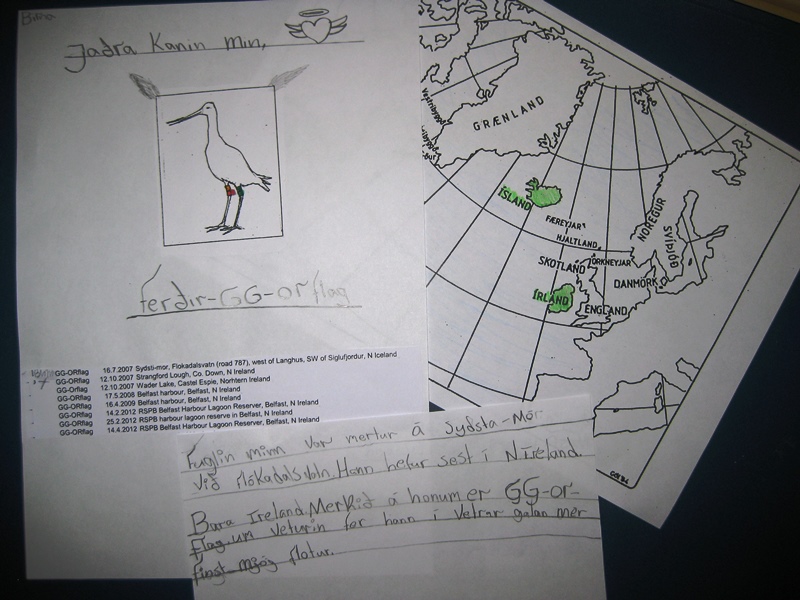 Birna
Jaðra Kanin min,
ferðir-GG-or flag
GG-ORflag 16.7.2007 Sydsti-mor, Flokadalsvatn (road 787), west of Langhus, SW of Siglufjordur, N Iceland
GG-ORflag 12.10.2007 Strangford Lough, Co. Down, N Ireland
GG-Orflag 12.10.2007 Wader Lake, Castel Espie, Norhtern Ireland
GG-ORflag 17.5.2008 Belfast harbour, Belfast, N Ireland
GG-ORflag 16.4.2009 Belfast harbour, Belfast, N Ireland
GG-ORflag 14.2.2012 RSPB Belfast Harbour Lagoon Reserver, Belfast, N Ireland
GG-ORflag 25.2.2012 RSPB harbour lagoon reserve in Belfast, N Ireland
GG-ORflag 14.4.2012 RSPB Belfast Harbour Lagoon Reserver, Belfast, N Ireland
Fuglin minn var mertur á Sydsta-Mór
við flókadalsvatn. Hann hefur sest í N Ireland.
Bara Ireland. Merkið á honum er GG-or-
flag. um veturin fer hann í Vetrar galan mer
finst mjög flotur.
GRÆNLAND
ÍSLAND
FÆREYJAR
HJALTLAND
SKOTLAND
ORKNEYJAR
NOREGUR
SVIÞJÓÐ
DANMÖRK
ÍRLAND
ENGLAND